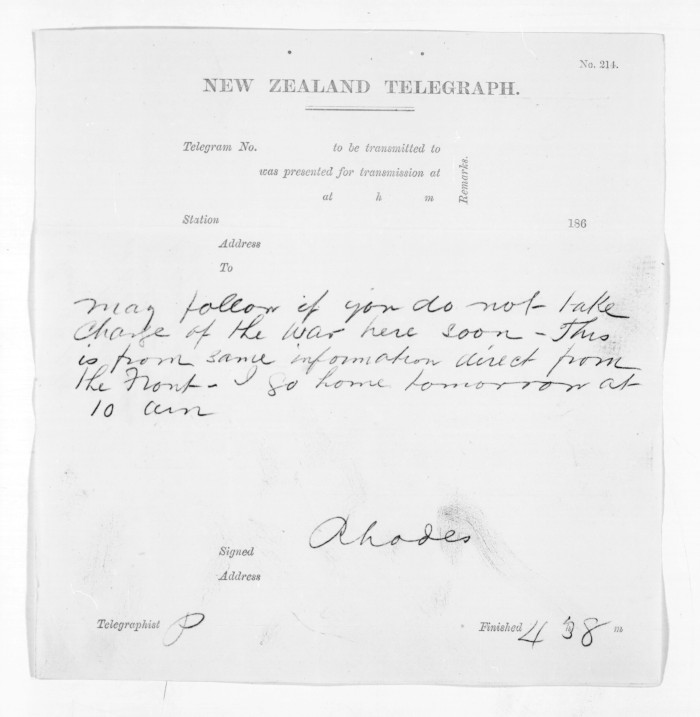 No. 214.
NEW ZEALAND TELEGRAPH.
Telegram No. to be transmitted to
was presented for transmission at
at h m
Remarks.
Station 186
Address
To
may follow if you do not take
charge of the war here soon – This
is from same information direct from
the Front – I go home tomorrow at
10 am
Signed Rhodes
Address
Telegraphist P Finished 4 38 m